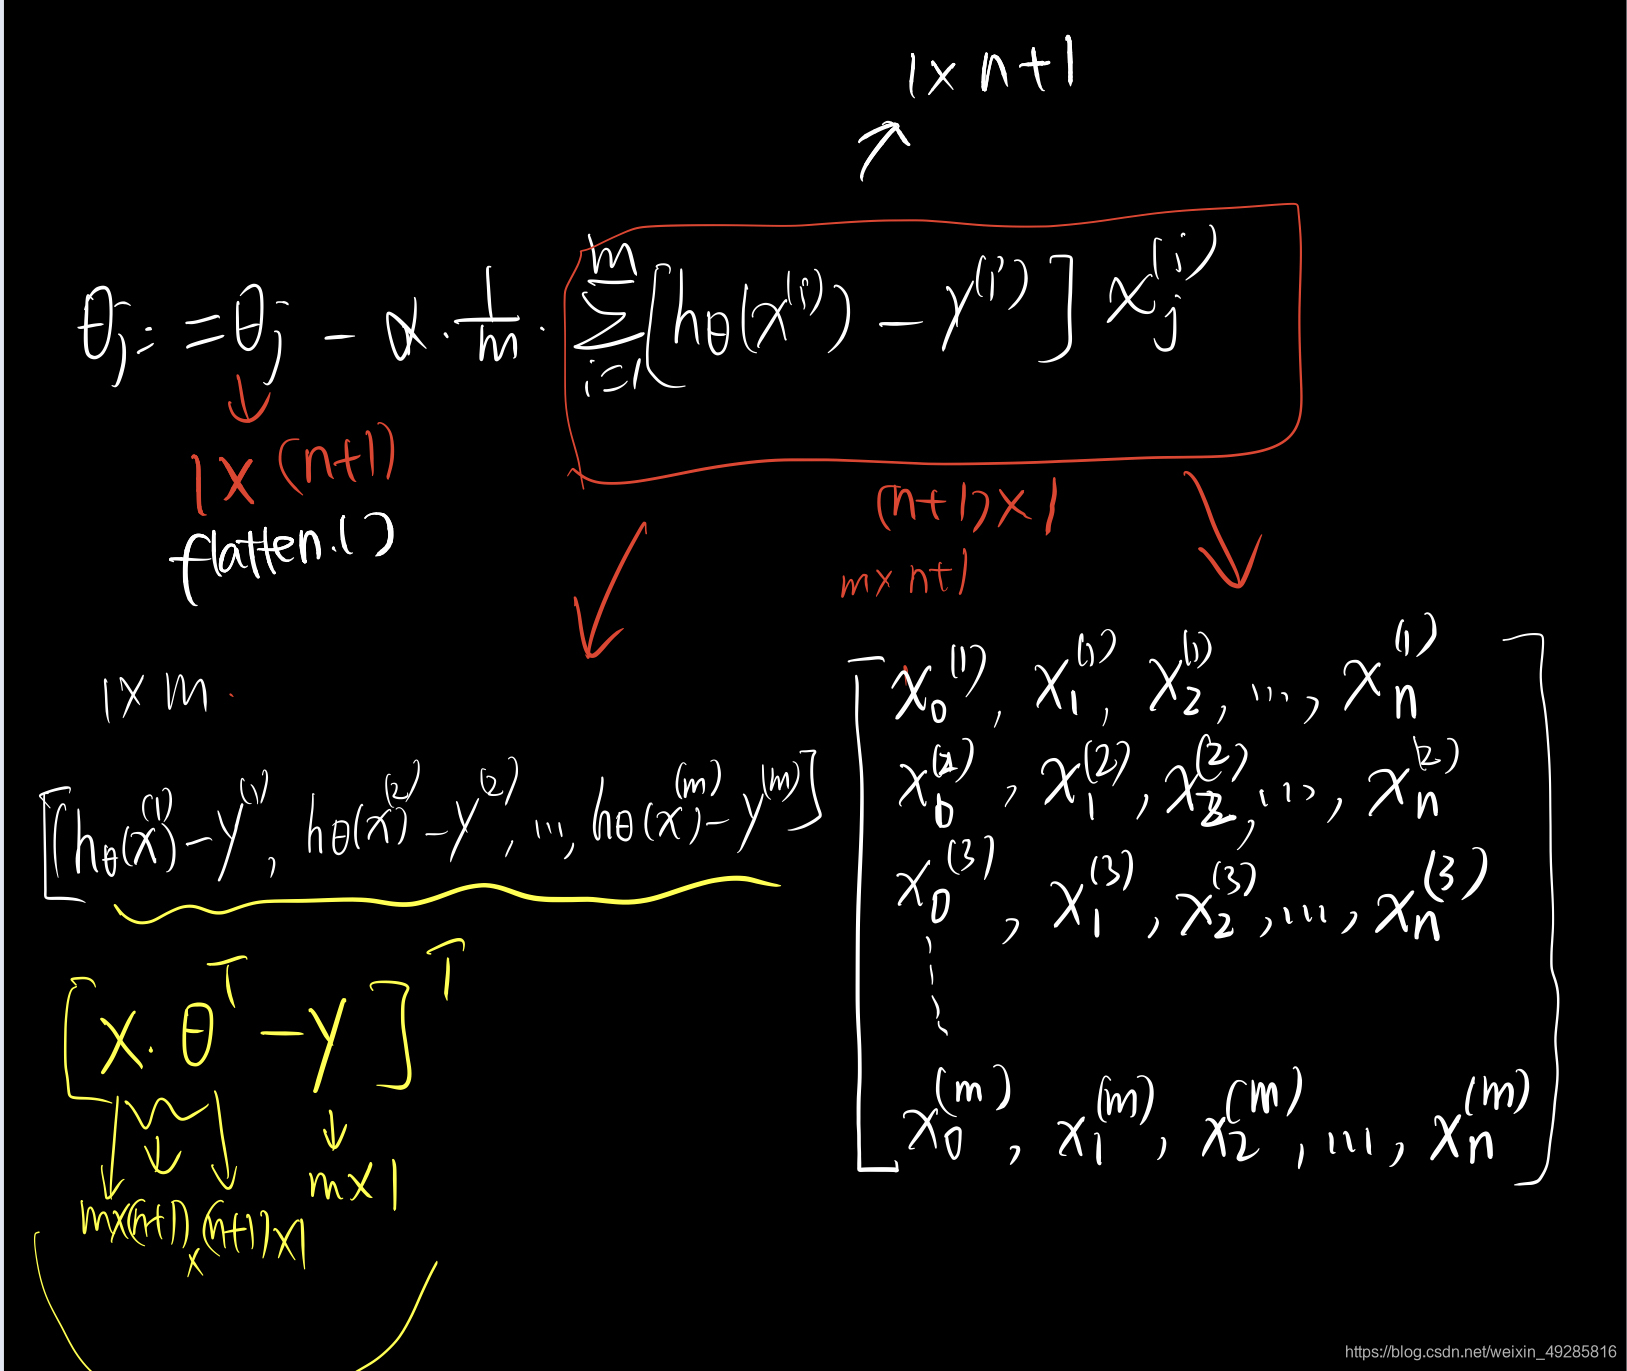 1×n+1
θj := θj − α · 1/m · ∑_{i=1}^{m} [hθ(x^(i)) − y^(i)] xj^(i)
1×(n+1)
flatten.()
(n+1)×1
m×n+1
1×m
[(hθ(x)^(1) − y^(1), hθ(x)^(2) − y^(2), ..., hθ(x)^(m) − y^(m)]
[x·θ^T − y]^T
m×1
m×(n+1) × (n+1)×1
x0^(1), x1^(1), x2^(1), ..., xn^(1)
x0^(2), x1^(2), x2^(2), ..., xn^(2)
x0^(3), x1^(3), x2^(3), ..., xn^(3)
x0^(m), x1^(m), x2^(m), ..., xn^(m)
https://blog.csdn.net/weixin_49285816